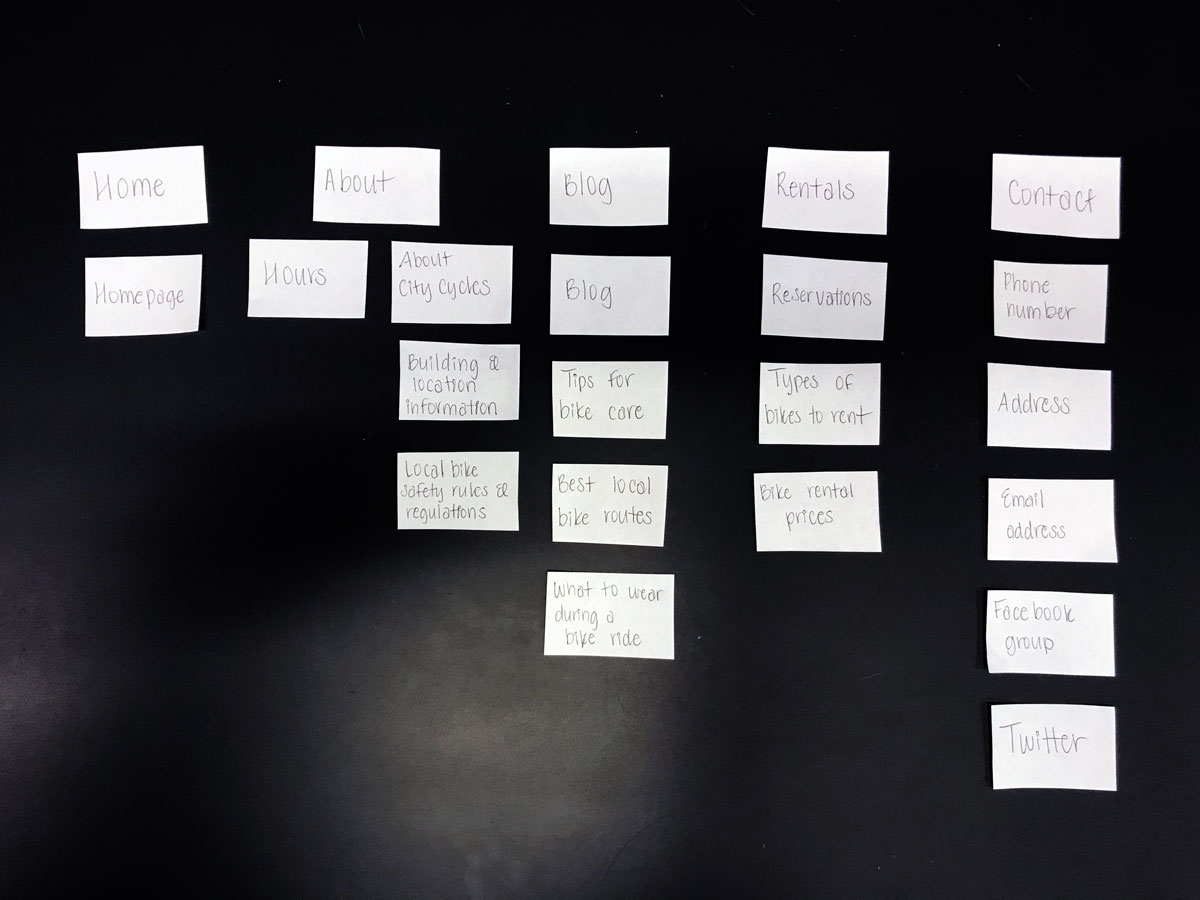 Home
Homepage
About
Hours
About
City Cycles
Building &
location
information
Local bike
safety rules &
regulations
Blog
Blog
Tips for
bike care
Best local
bike routes
What to wear
during a
bike ride
Rentals
Reservations
Types of
bikes to rent
Bike rental
prices
Contact
Phone
number
Address
Email
address
Facebook
group
Twitter